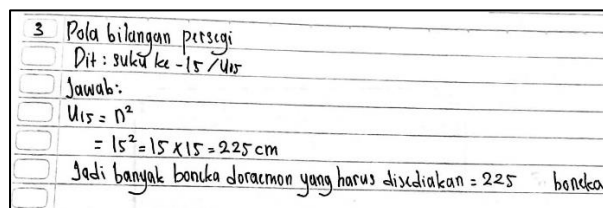 3 Pola bilangan persegi
Dit : suku ke - 15 / U15
Jawab:
U15 = n²
= 15² = 15 x 15 = 225 cm
Jadi banyak boneka doraemon yang harus disediakan = 225 boneka